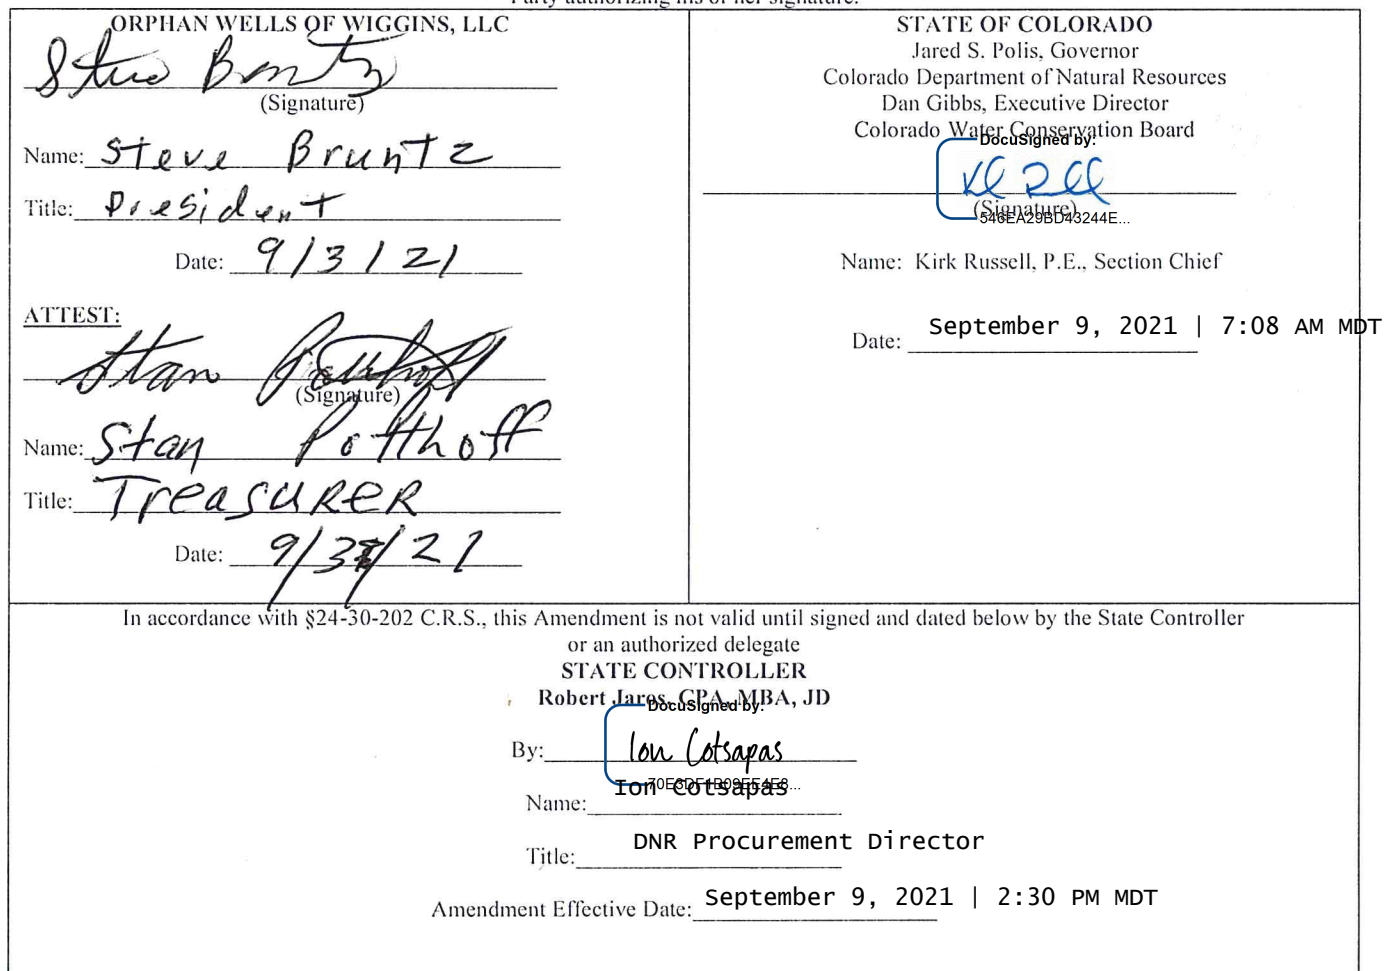 Party authorizing his or her signature.
ORPHAN WELLS OF WIGGINS, LLC
Steve Bruntz
(Signature)
Name: Steve Bruntz
Title: President
Date: 9/3/21
ATTEST:
Stan Potthoff
(Signature)
Name: Stan Potthoff
Title: Treasurer
Date: 9/3/21
STATE OF COLORADO
Jared S. Polis, Governor
Colorado Department of Natural Resources
Dan Gibbs, Executive Director
Colorado Water Conservation Board
DocuSigned by:
(Signature)
546EA29BD43244E...
Name: Kirk Russell, P.E., Section Chief
Date: September 9, 2021 | 7:08 AM MDT
In accordance with §24-30-202 C.R.S., this Amendment is not valid until signed and dated below by the State Controller
or an authorized delegate
STATE CONTROLLER
Robert Jaros, CPA, MBA, JD
DocuSigned by:
By: Ion Cotsapas
70E3DF1B09EE4E8...
Name: Ion Cotsapas
Title: DNR Procurement Director
Amendment Effective Date: September 9, 2021 | 2:30 PM MDT